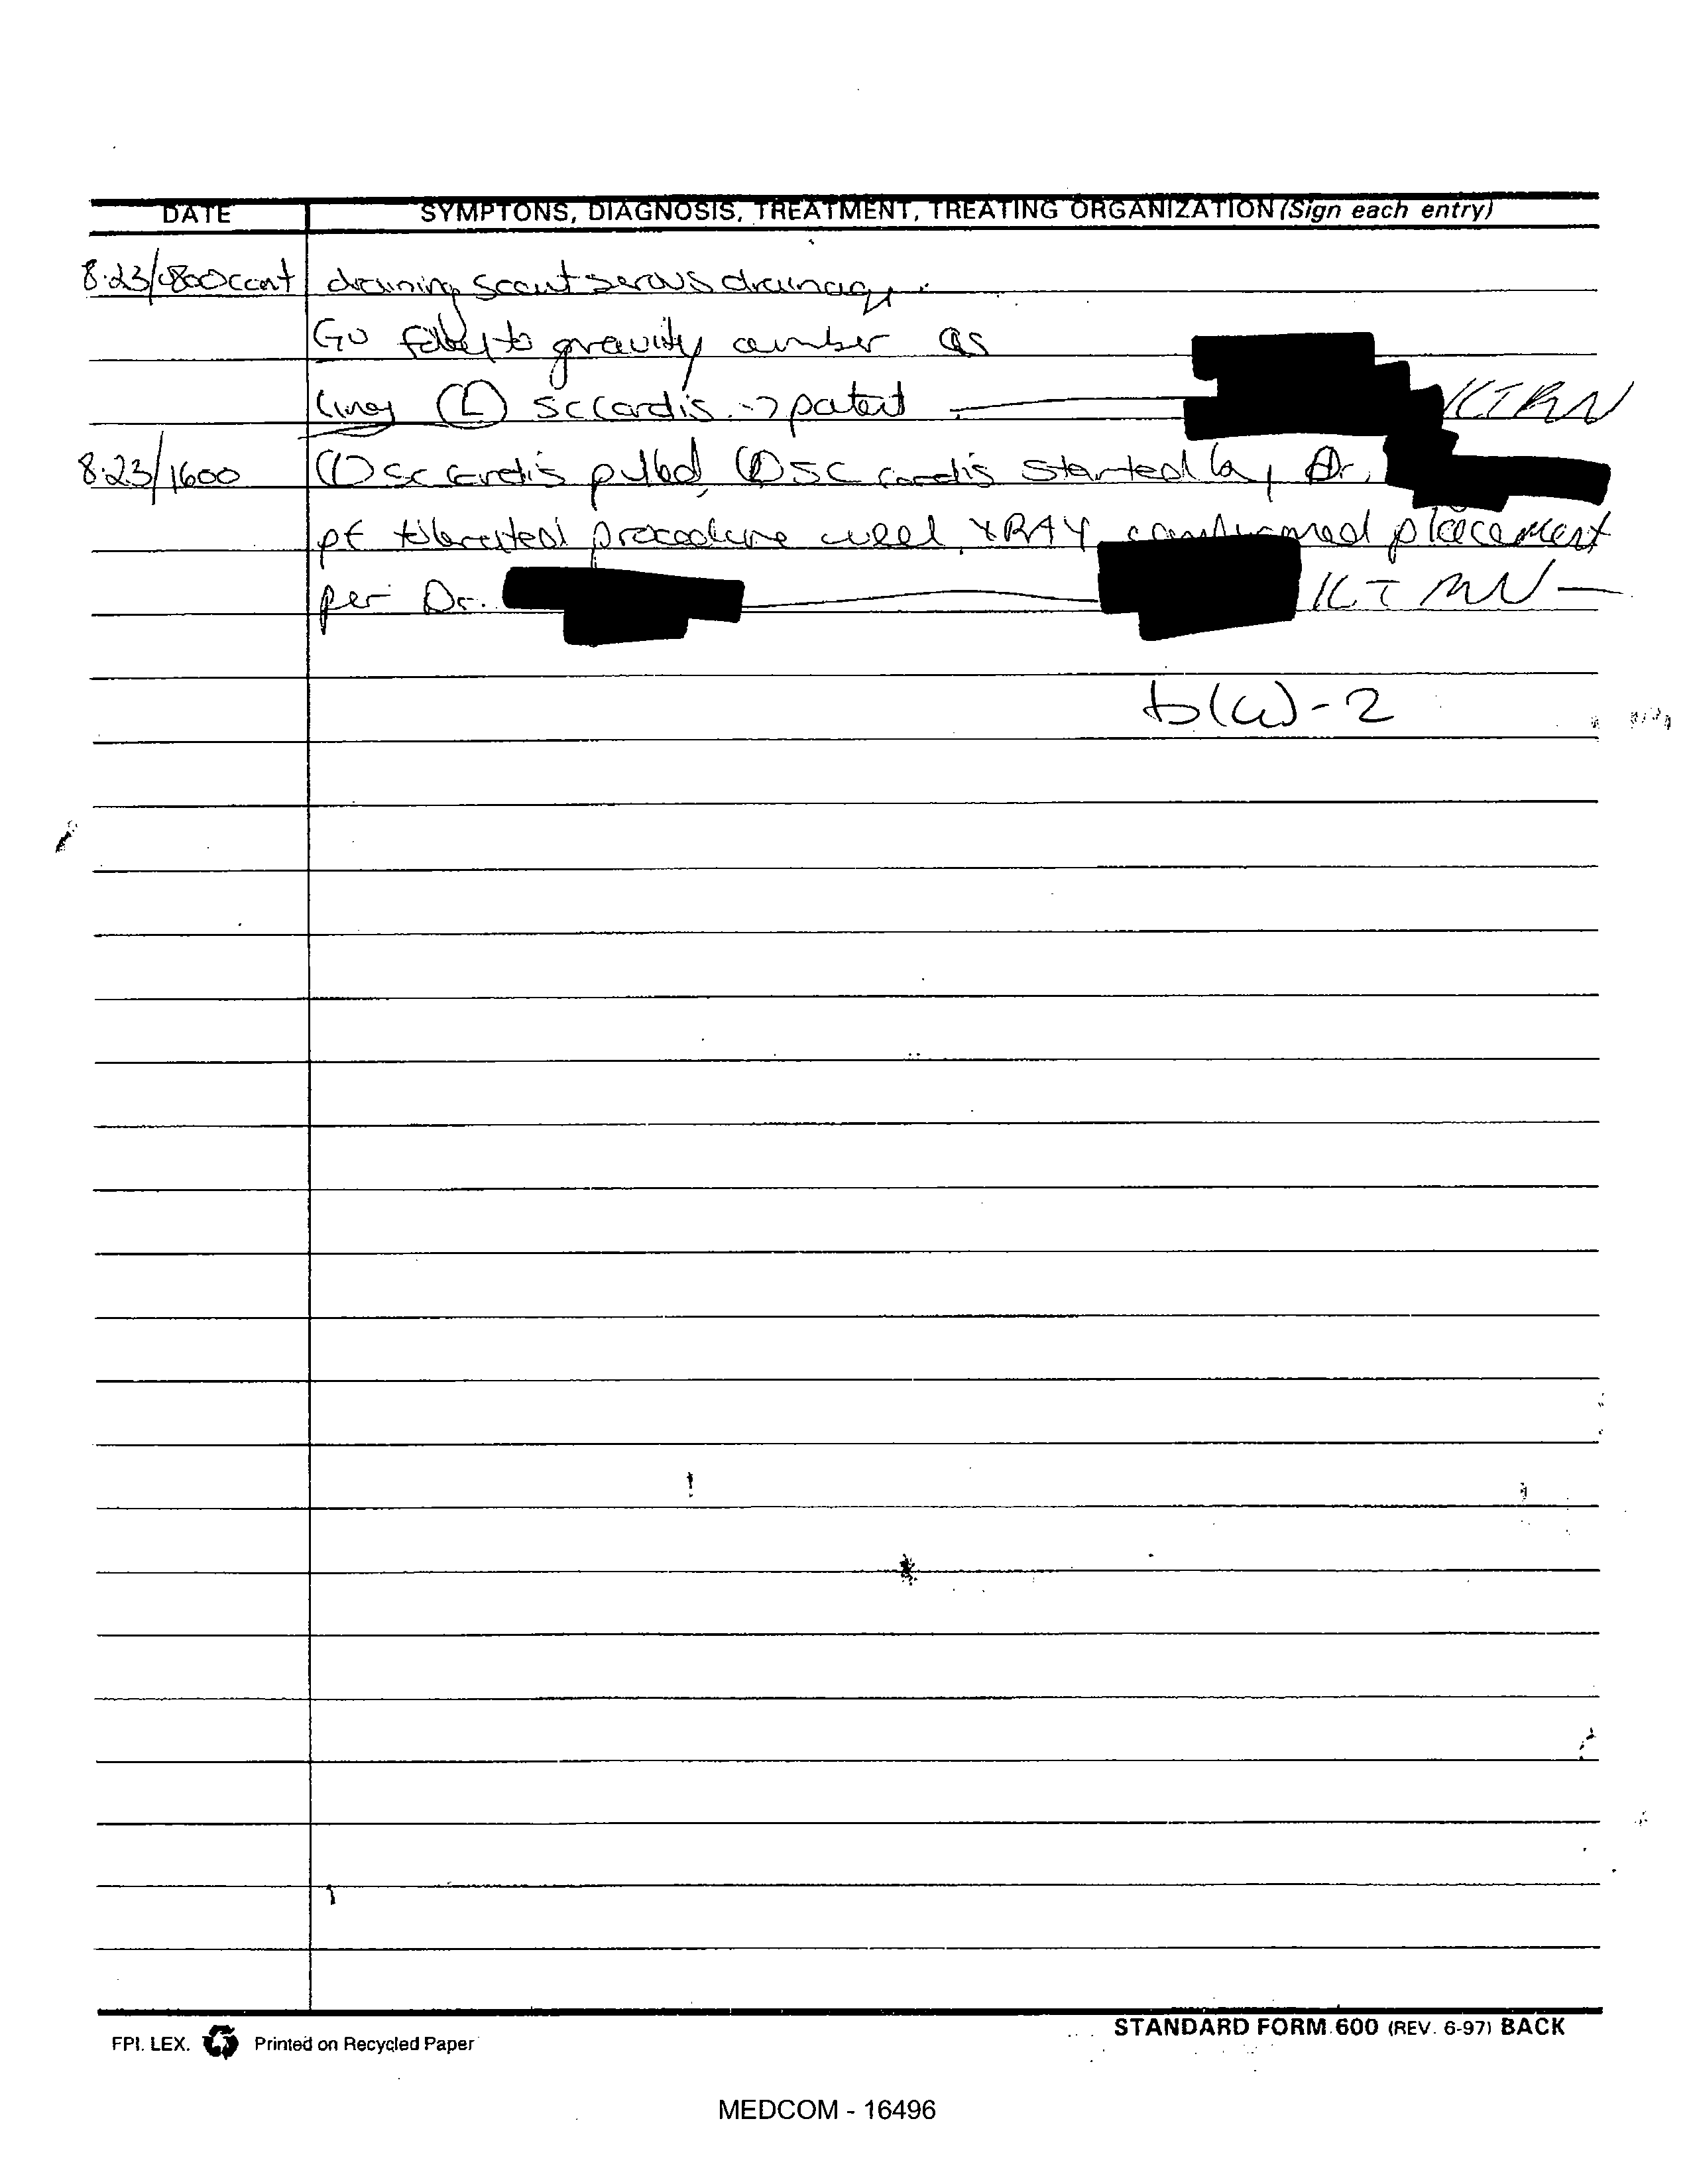 DATE SYMPTONS, DIAGNOSIS, TREATMENT, TREATING ORGANIZATION (Sign each entry)
8.23/0800 cont draining scant serous drainage.
GU foley to gravity amber
Lines (L) SC Cordis -> patent
8.23/1600 SC Cordis pulled, SC Cordis started by Dr.
pt tolerated procedure well, XRAY confirmed placement
per Dr.
b(6)-2
FPI. LEX. Printed on Recycled Paper
STANDARD FORM 600 (REV. 6-97) BACK
MEDCOM - 16496